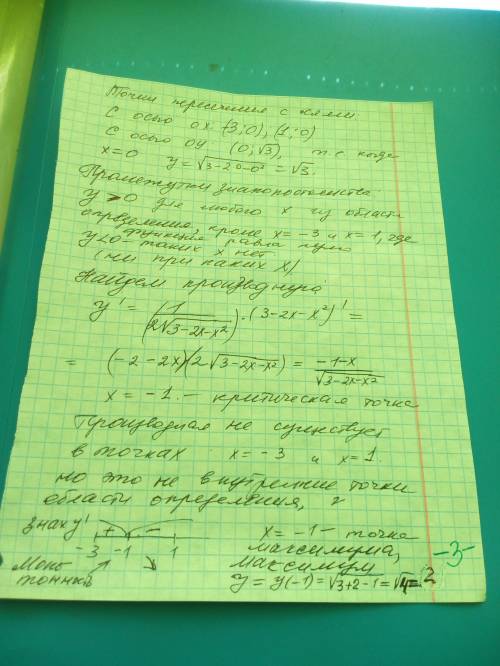 Точки пересечения с осями:
С осью ox: (-3;0), (1;0)
С осью oy (0;√3), т.е. когда
x=0 y=√(3-2·0-0²) = √3.
Промежутки знакопостоянства:
y>0 для любого x из области
определения, кроме x=-3 и x=1, где
функция равна нулю
y<0 - таких x нет
(ни при каких x)
Найдем производную
y' = (1/(2√(3-2x-x²)))·(3-2x-x²)' =
= (-2-2x)/(2√(3-2x-x²)) = (-1-x)/√(3-2x-x²)
x = -1. - критическая точка
Производная не существует
в точках x=-3 и x=1.
но это не внутренние точки
области определения,
знак y' + -
-3 -1 1
Моно-
тонность ↗ ↘
x=-1 - точка
максимума,
максимум
y = y(-1) = √(3+2-1) = √4 = 2
-3-